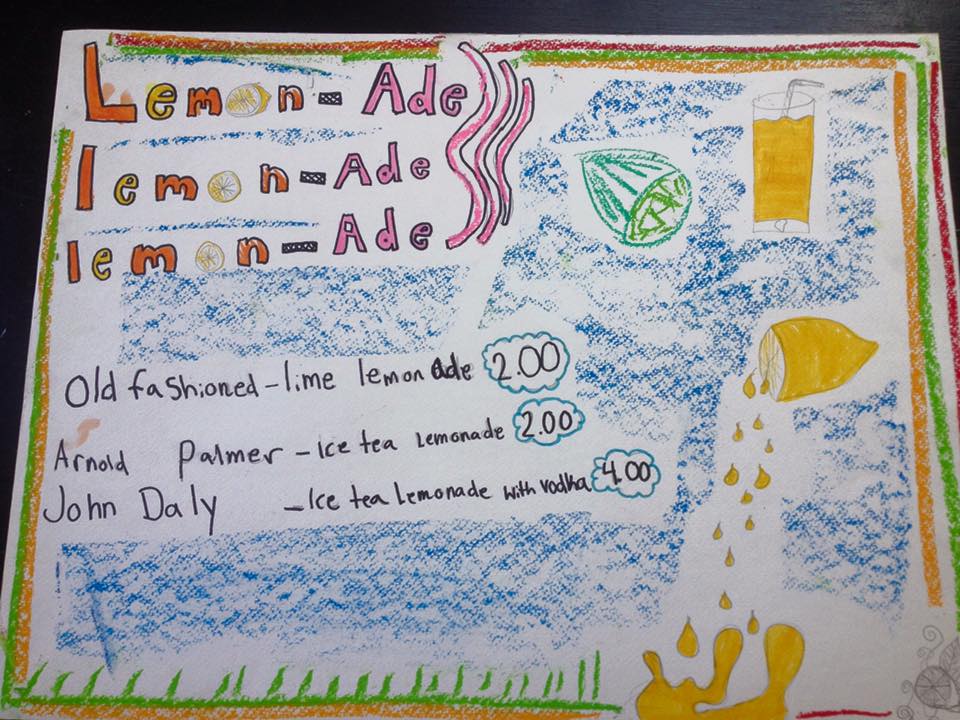 Lemon-Ade
lemon-Ade
lemon-Ade
Old fashioned-lime lemonAde 2.00
Arnold Palmer-Ice tea Lemonade 2.00
John Daly -Ice tea Lemonade with vodka 4.00